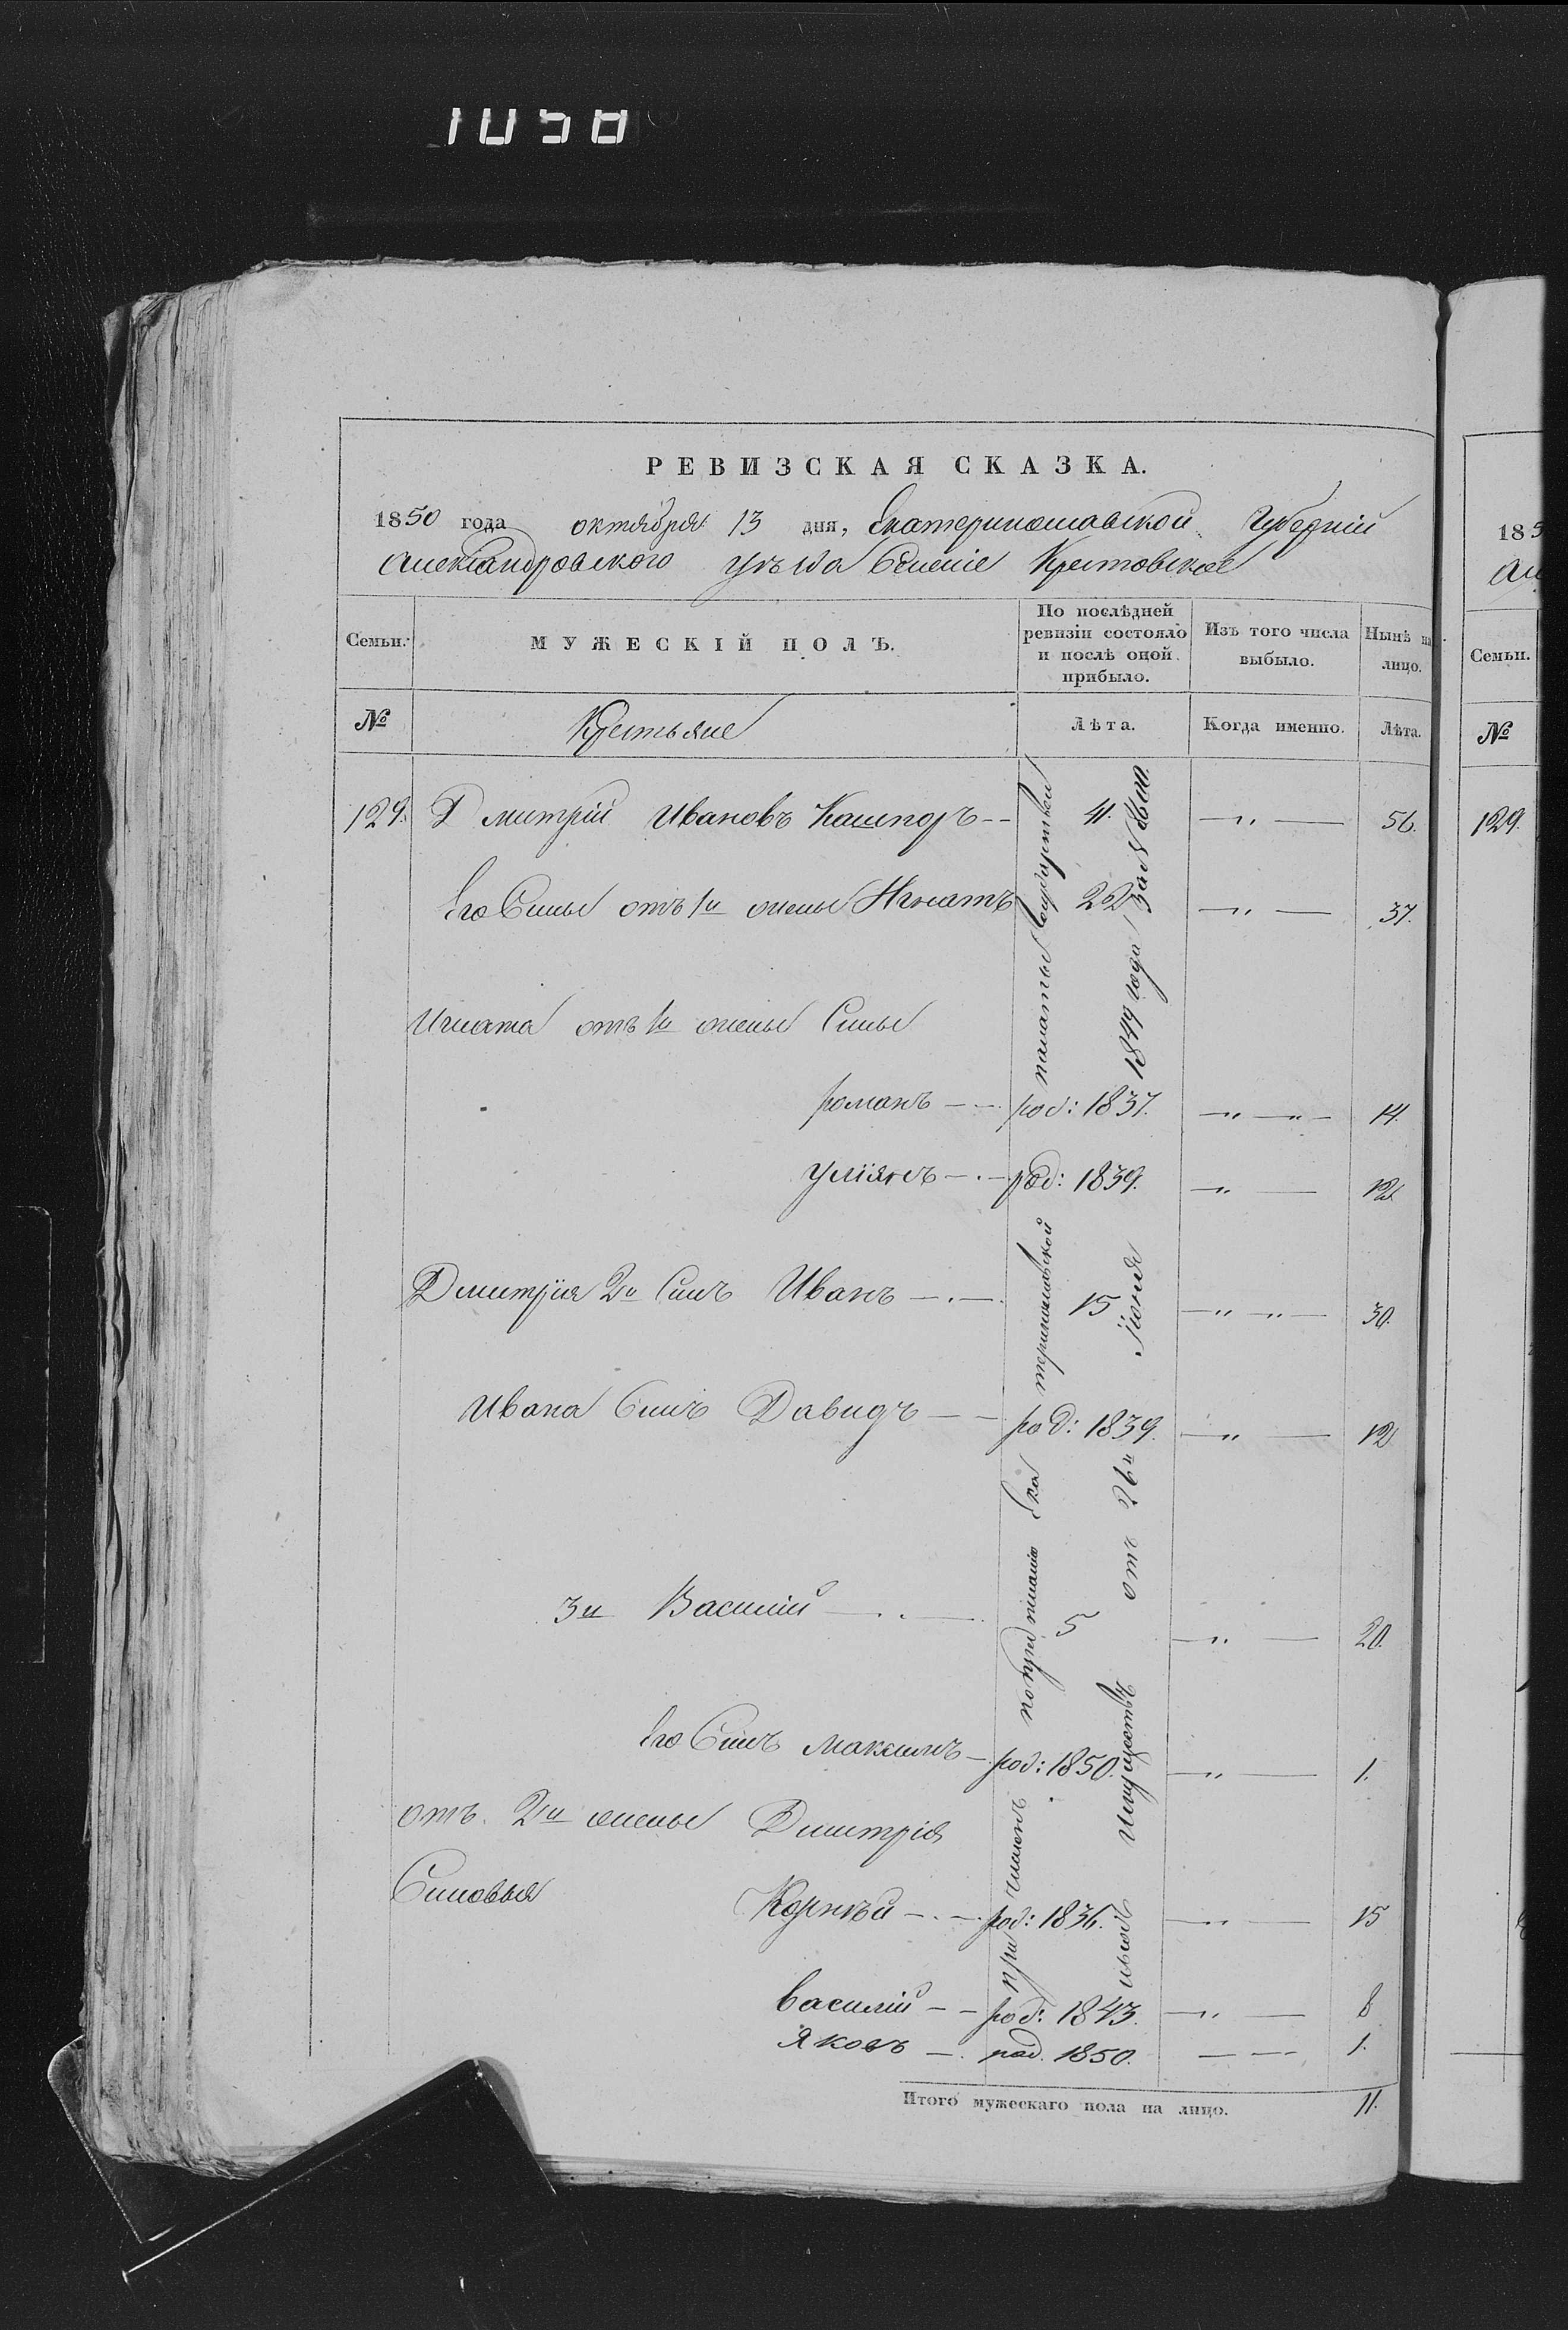 1058
РЕВИЗСКАЯ СКАЗКА.
1850 года октября 13 дня, Екатеринославской Губерній
Александровского уѣзда Селеніе Крестовское
Семьи. МУЖЕСКІЙ ПОЛЪ. По послѣдней ревизіи состояло и послѣ оной прибыло. Изъ того числа выбыло. Нынѣ на лицо.
№ Крестьяне Лѣта. Когда именно. Лѣта.
129. Дмитрій Ивановъ Кашпоръ -- 41. —„— 56.
Его Сины отъ 1й жены Игнатъ 22 —„— 37.
Игната отъ 1й жены Сины
романъ — род: 1837. —„—„— 14.
уліянъ — род: 1839. —„— 12.
Дмитрія 2й Синъ Иванъ — 15 —„—„— 30.
Ивана Синъ Давидъ — род: 1839. —„— 12
3й Василій — 5 —„— 20.
Его Синъ Максимъ — род: 1850. —„— 1.
отъ 2й жены Дмитрія
Синовья Корнѣй — род: 1836. —„— 15
Василій — род: 1843. —„— 8
Яковъ — род. 1850. — — 1.
причисленъ по предписанію Екатеринославской палаты Государствен
ныхъ Имуществъ отъ 26й Іюня 1849 года за №
Итого мужескаго пола на лицо. 11.
185
Ал
Семьи.
№
129.